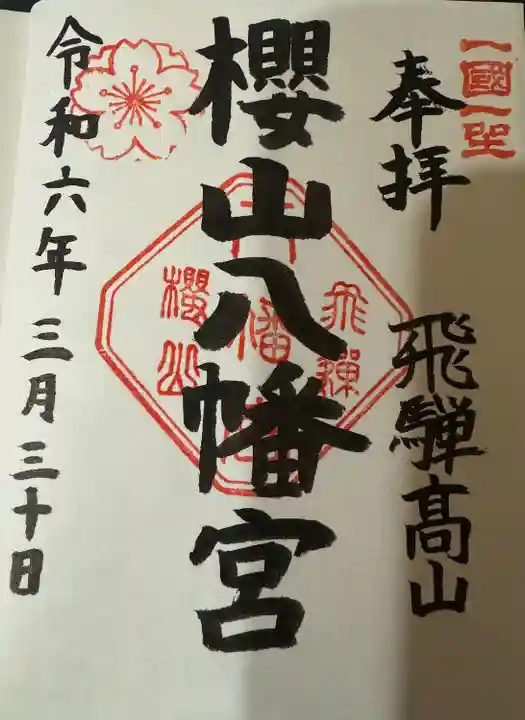 一國一社
奉拝
飛騨髙山
櫻山八幡宮
飛騨
八幡
櫻山
令和六年三月三十日